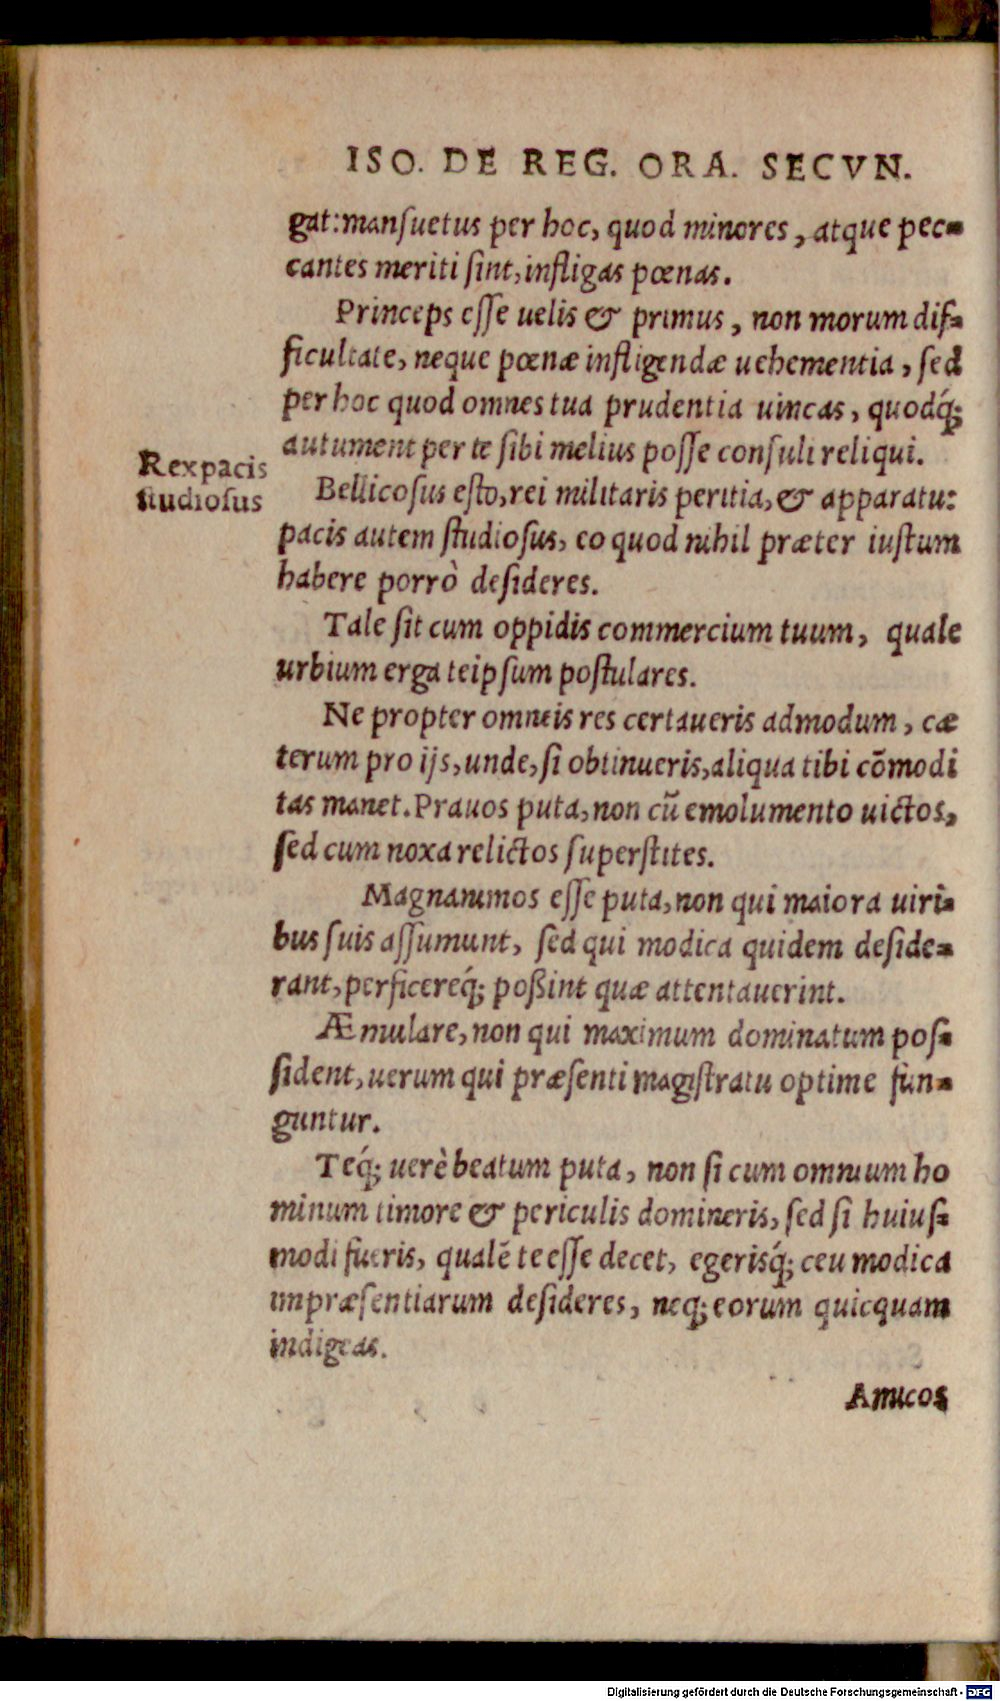 ISO. DE REG. ORA. SECVN.
gat: manſuetus per hoc, quod minores, atque pec-
cantes meriti ſint, infligas pœnas.
Princeps eſſe uelis & primus, non morum dif-
ficultate, neque pœnæ infligendæ uehementia, ſed
per hoc quod omnes tua prudentia uincas, quodq́;
autument per te ſibi melius poſſe conſuli reliqui.
Rex pacis
ſtudioſus
Bellicoſus eſto, rei militaris peritia, & apparatu:
pacis autem ſtudioſus, eo quod nihil præter iuſtum
habere porrò deſideres.
Tale ſit cum oppidis commercium tuum, quale
urbium erga teipſum poſtulares.
Ne propter omneis res certaueris admodum, cæ
terum pro ijs, unde, ſi obtinueris, aliqua tibi cõmodi
tas manet. Prauos puta, non cũ emolumento uictos,
ſed cum noxa relictos ſuperſtites.
Magnanimos eſſe puta, non qui maiora uiri-
bus ſuis aſſumunt, ſed qui modica quidem deſide-
rant, perficereq́; poßint quæ attentauerint.
Æmulare, non qui maximum dominatum poſ-
ſident, uerum qui præſenti magiſtratu optime fun-
guntur.
Teq́; uerè beatum puta, non ſi cum omnium ho
minum timore & periculis domineris, ſed ſi huiuſ-
modi fueris, qualẽ te eſſe decet, egerisq́; ceu modica
impræſentiarum deſideres, neq; eorum quicquam
indigeas.
Amicos
Digitalisierung gefördert durch die Deutsche Forschungsgemeinschaft - DFG